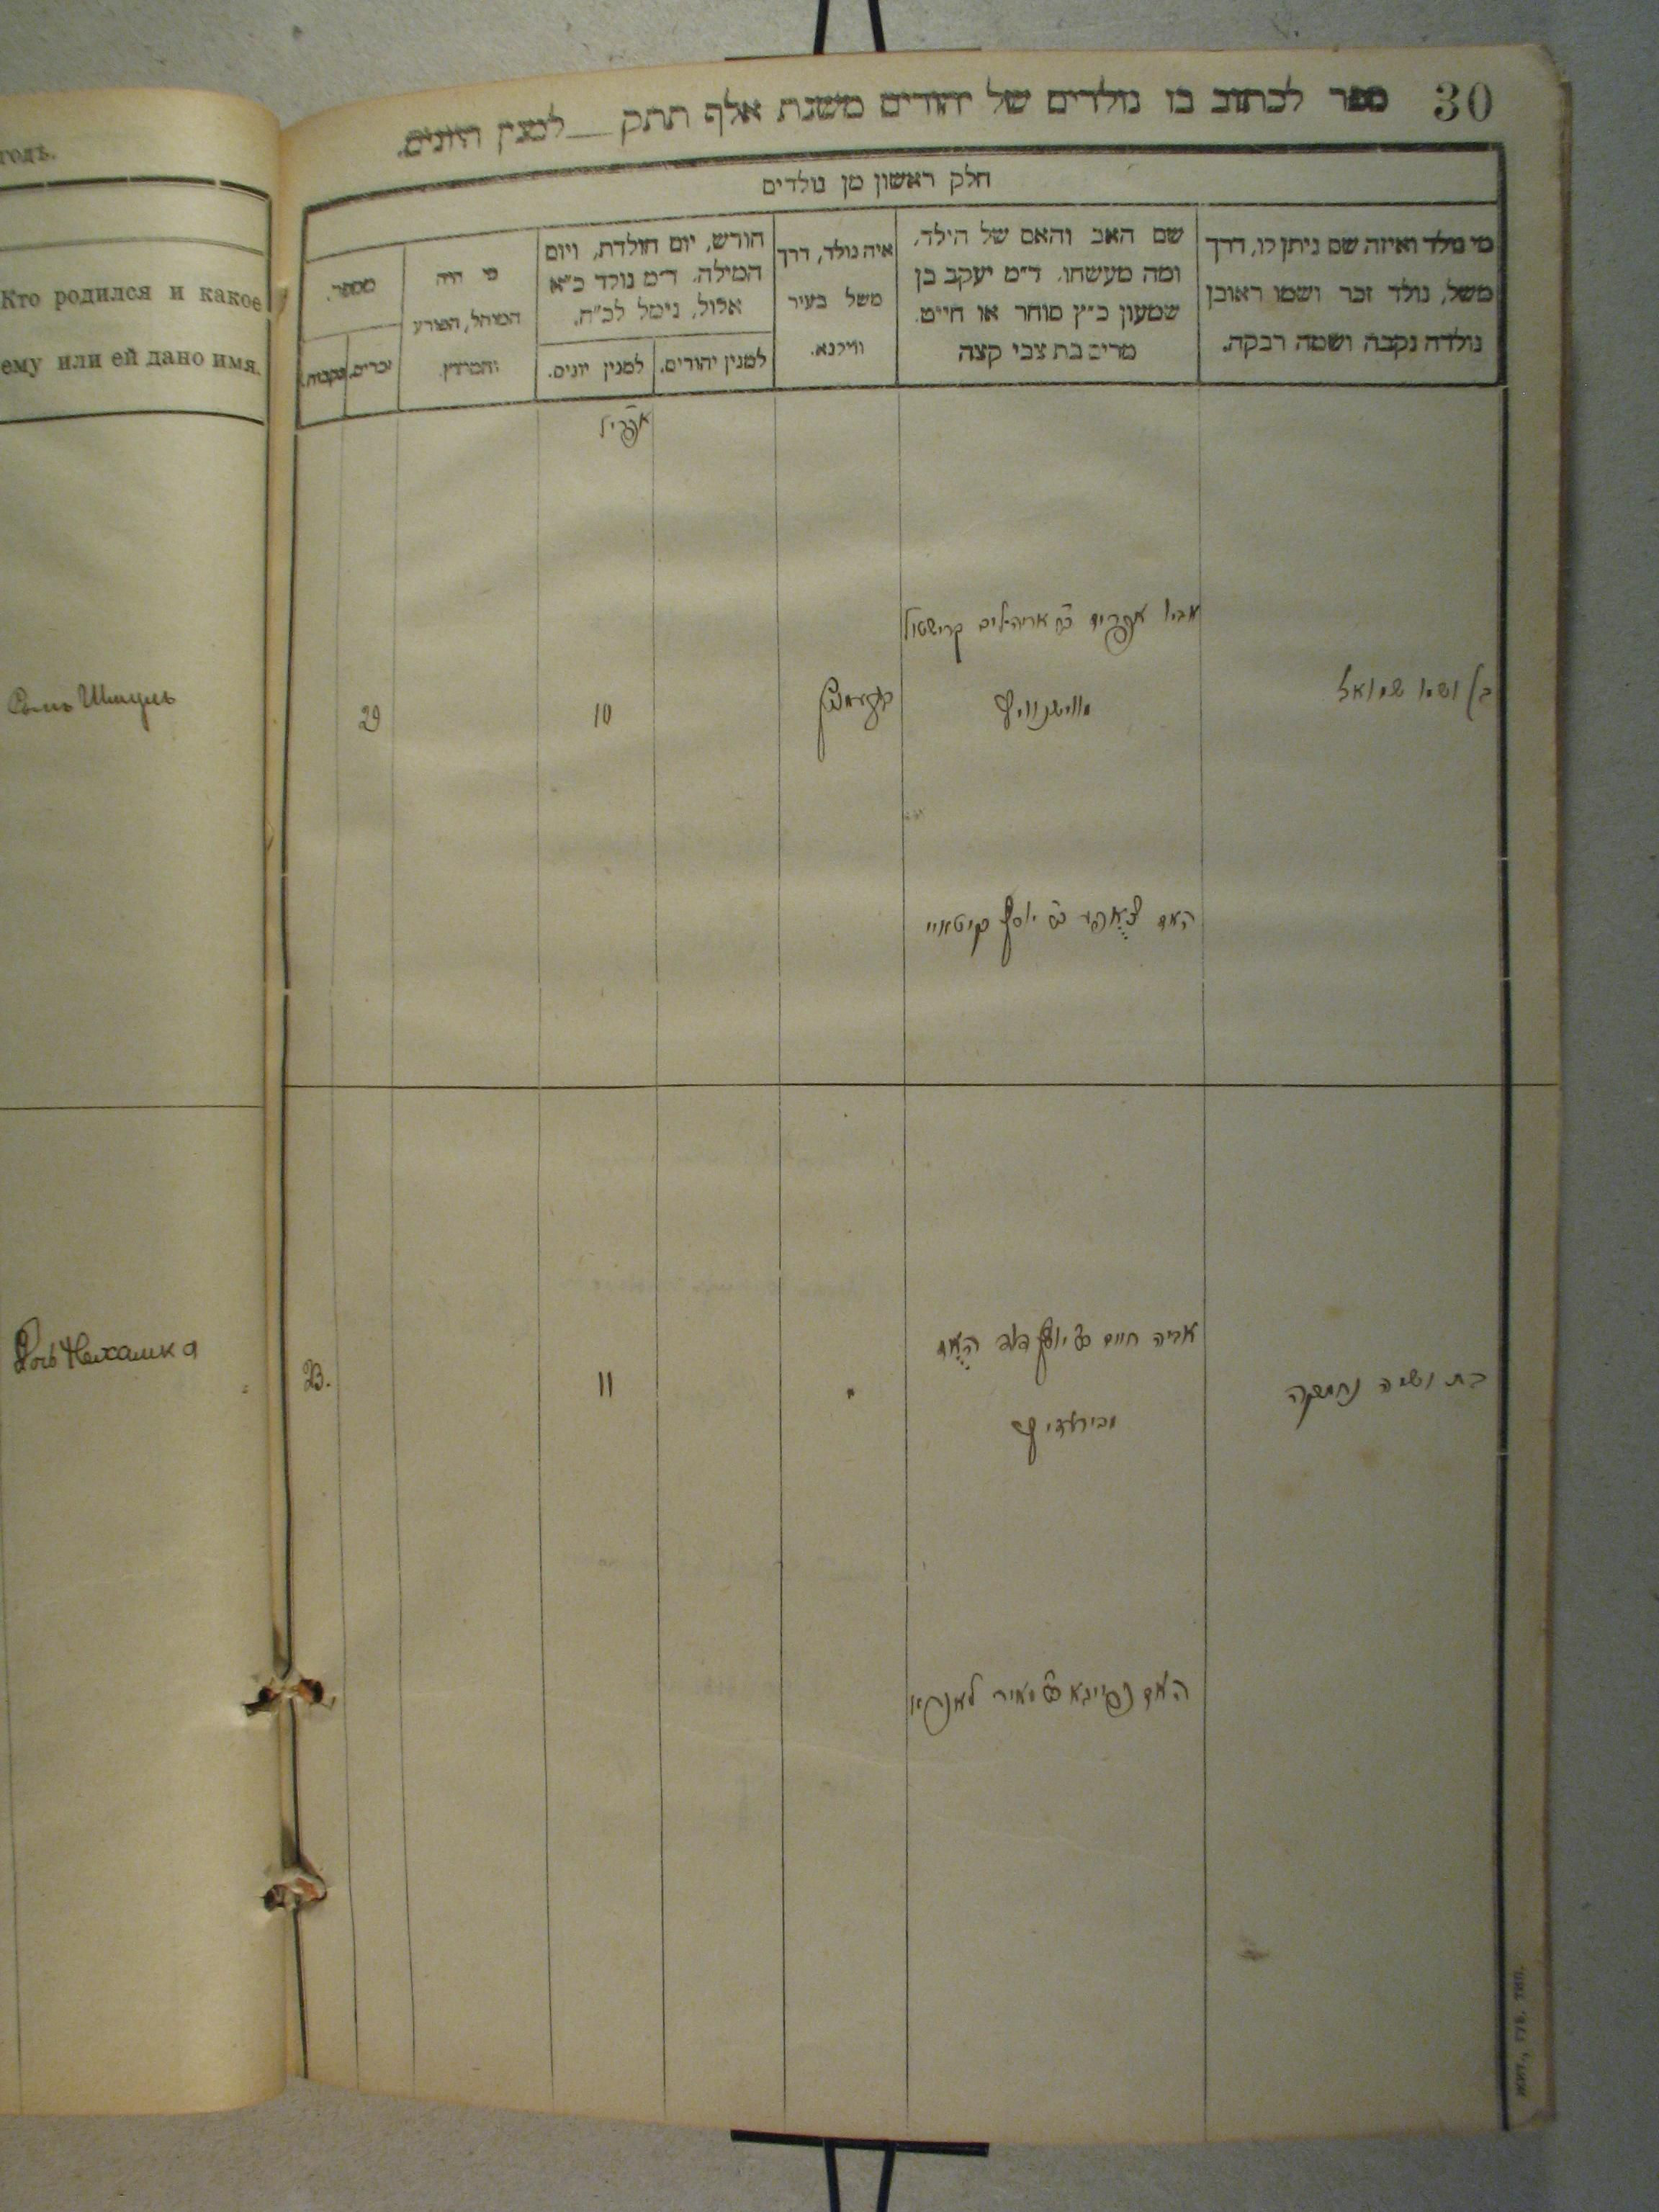 годъ.
Кто родился и какое
ему или ей дано имя.
Сынъ Шмуль
Дочь Нехамка
30
ספר לכתוב בו נולדים של יהודים משנת אלף תתק__למנין היונים.
חלק ראשון מן נולדים
מי נולד ואיזה שם ניתן לו, דרך
משל, נולד זכר ושמו ראובן
נולדה נקבה ושמה רבקה.
שם האב והאם של הילד,
ומה מעשהו. ד״מ יעקב בן
שמעון כ״ץ סוחר או חייט.
מרים בת צבי קצה
איה נולד, דרך
משל בעיר
ווילנא.
חודש, יום הולדת, ויום
המילה. ד״מ נולד כ״א
אלול, נימל לכ״ח.
למנין יהודים.
למנין יונים.
מי היה
המוהל, הפורע
והמוצץ.
מספר.
זכרים.
נקבות.
אפריל
בן ושמו שמואל
אביו אפרים ב״ר אריה ליב קרישטול
10
29
האם יוסף
בת ושמה נחמקה
אביה חיים יוסף
"
11
23.
האם מאיר
жит., губ. тип.